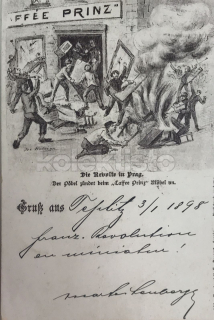 OFFEE PRINZ"
Die Revolte in Prag.
Der Pöbel zündet beim „Caffee Prinz" Möbel an.
Gruß aus Teplitz 3/1 1898
franz. Revolution
en miniature!